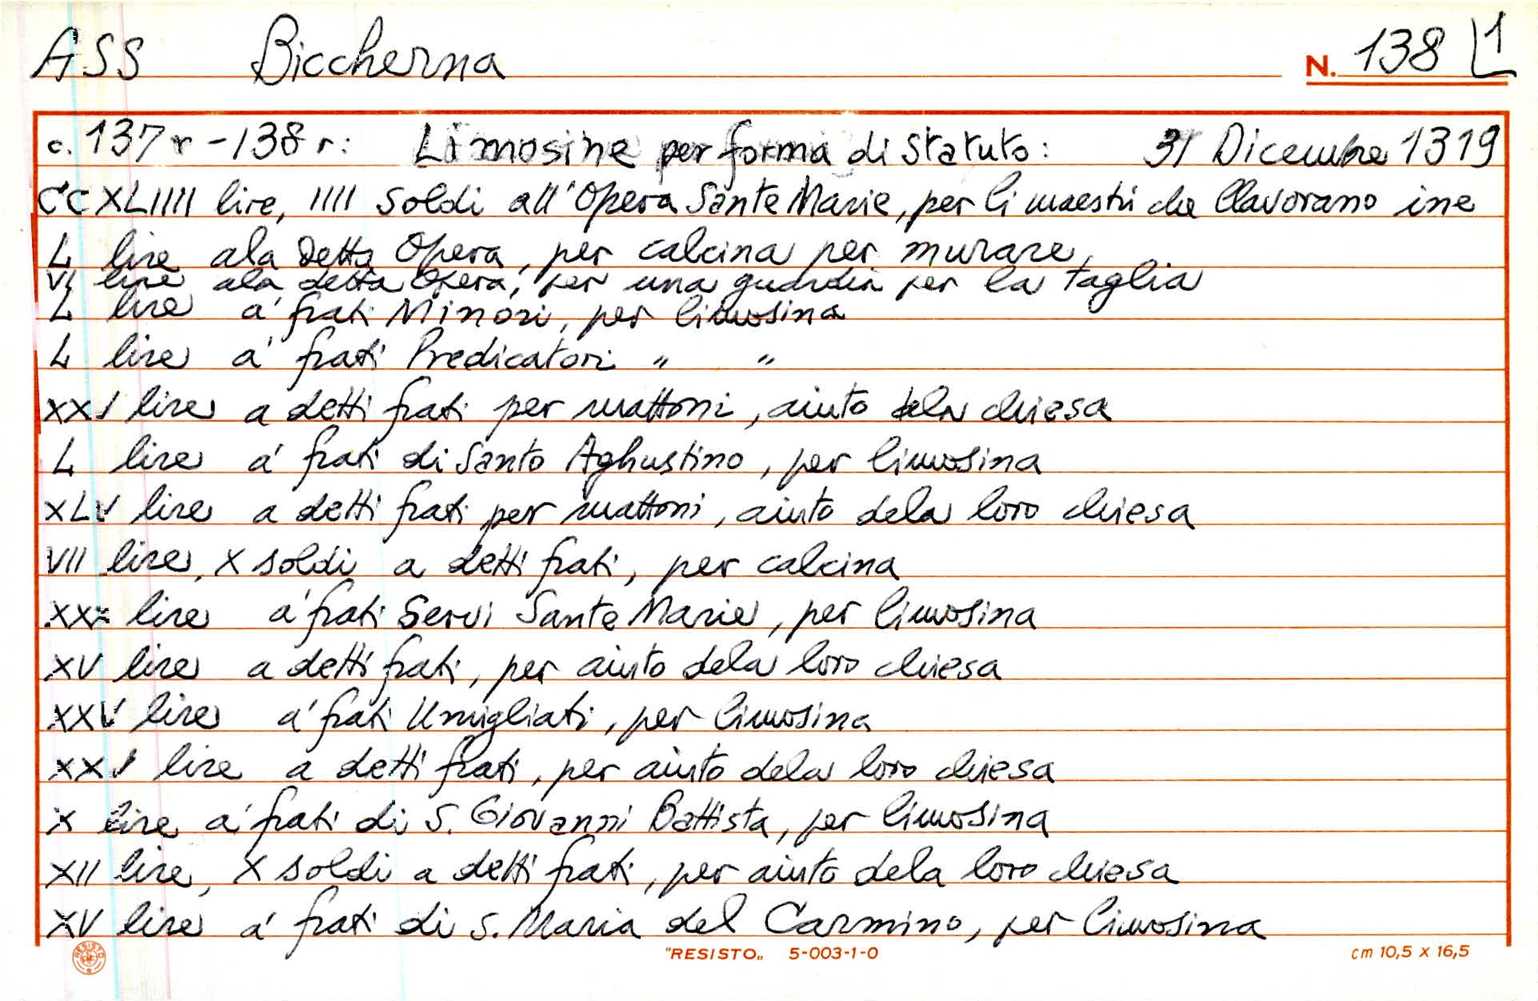 ASS Biccherna N. 138 1
c. 137 r - 138 r: Limosine per forma di Statuto: 31 Dicembre 1319
CCXLIIII lire, IIII soldi all'Opera Sante Marie, per li maestri che llavorano ine
L lire ala detta Opera, per calcina per murare,
VI lire ala detta Opera, per una guardia per la taglia
L lire a' frati Minori, per limosina
L lire a' frati Predicatori " "
XXV lire a detti frati per mattoni, aiuto dela chiesa
L lire a' frati di Santo Aghustino, per limosina
XLV lire a detti frati per mattoni, aiuto dela loro chiesa
VII lire, X soldi a detti frati, per calcina
XXX lire a' frati Servi Sante Marie, per limosina
XV lire a detti frati, per aiuto dela loro chiesa
XXV lire a' frati Umigliati, per limosina
XXV lire a detti frati, per aiuto dela loro chiesa
X lire a' frati di S. Giovanni Battista, per limosina
XII lire, X soldi a detti frati, per aiuto dela loro chiesa
XV lire a' frati di S. Maria del Carmino, per limosina
RESISTO "RESISTO„ 5-003-1-0 cm 10,5 x 16,5